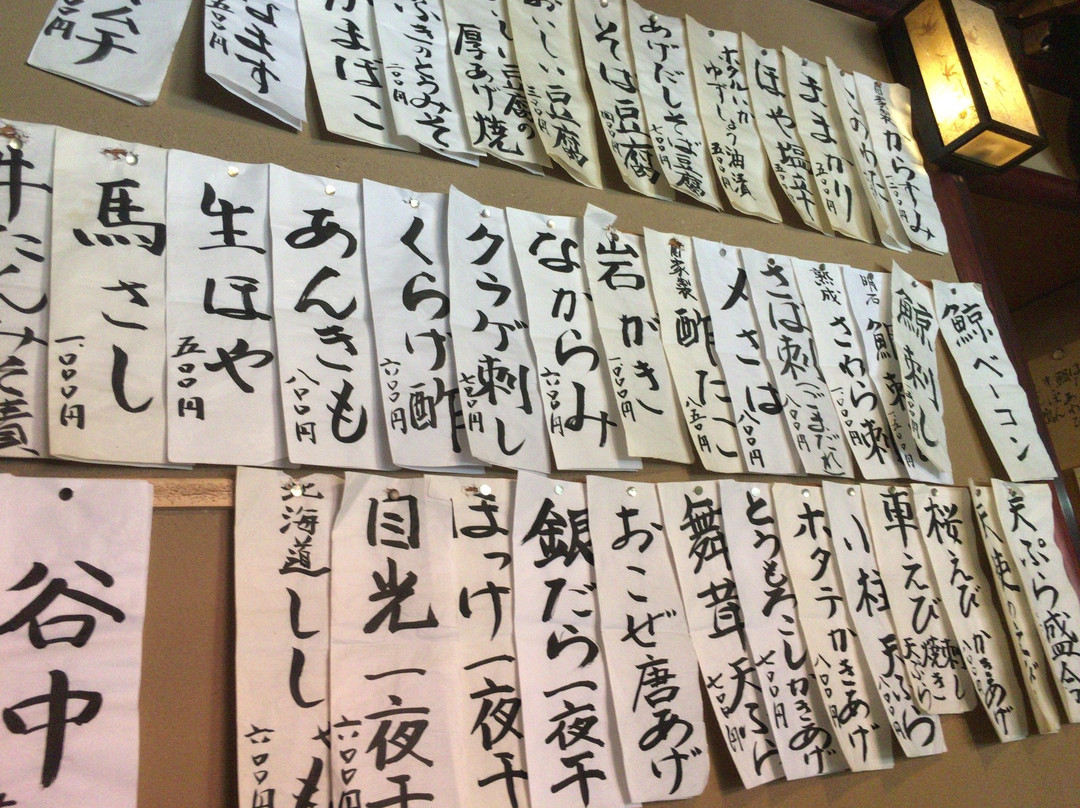 からすみ
自家製
このわた
ままかり
五〇〇円
ほや塩辛
ホタルイカ
しょう油漬
五〇〇円
あげだしそば豆腐
七〇〇円
そば豆腐
おいしい豆腐
五〇〇円
豆腐の
厚あげ焼
ふきのとうみそ
かまぼこ
鯨ベーコン
鯨刺し
明石
熟成
さわら刺
さば刺
ごまだれ
八〇〇円
〆さば
八〇〇円
自家製
酢だこ
八五〇円
岩がき
一〇〇〇円
なからみ
六〇〇円
クラゲ刺し
七五〇円
くらげ酢
六〇〇円
あんきも
八〇〇円
生ほや
五〇〇円
馬さし
一〇〇〇円
牛たんみそ漬
天ぷら盛合
桜えび
かきあげ
車えび
刺し
焼き
天ぷら
小柱
天ぷら
ホタテかきあげ
八〇〇円
とうもろこしかきあげ
七〇〇円
舞茸天ぷら
七〇〇円
おこぜ唐あげ
銀だら一夜干
ほっけ一夜干
目光一夜干
六〇〇円
北海道
ししゃも
六〇〇円
谷中